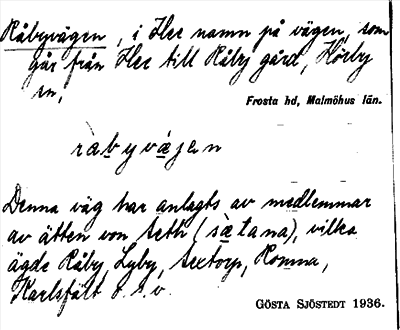 Råbyvägen, i Hee namn på vägen, som
går från Hee till Råby gård, Hörby
sn,
Frosta hd, Malmöhus län.
rabyvæjen
Denna väg har anlagts av medlemmar
av ätten von Seth (sætana), vilka
ägde Råby, Lyby, Sextorp, Romma,
Karlsfält o.s.v.
GÖSTA SJÖSTEDT 1936.